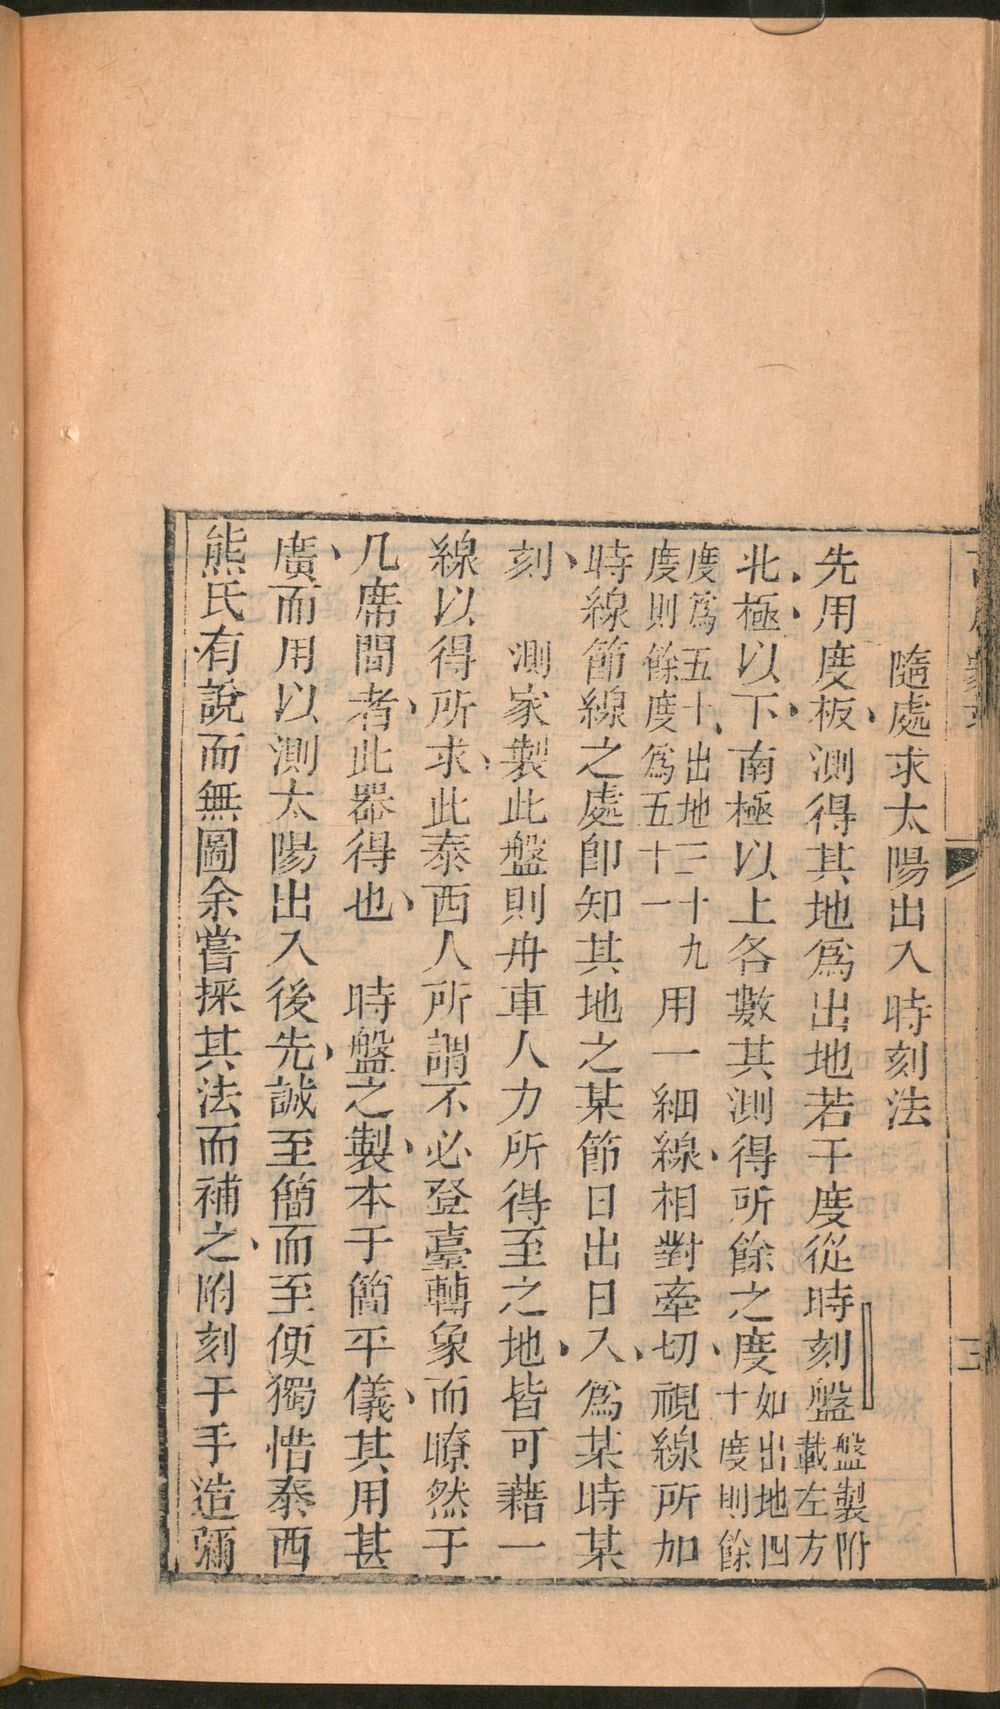 隨處求太陽出入時刻法
先用度板測得其地為出地若干度從時刻盤盤製附載左方
北極以下南極以上各數其測得所餘之度如出地四十度則餘
度為五十出地三十九度則餘度為五十一用一細線相對牽切視線所加
時線節線之處卽知其地之某節日出日入為某時某
刻　測家製此盤則舟車人力所得至之地皆可藉一
線以得所求此泰西人所謂不必登臺轉象而瞭然于
几席間者此器得也　時盤之製本于簡平儀其用甚
廣而用以測太陽出入後先誠至簡而至便獨惜泰西
熊氏有說而無圖余嘗採其法而補之附刻于手造彌